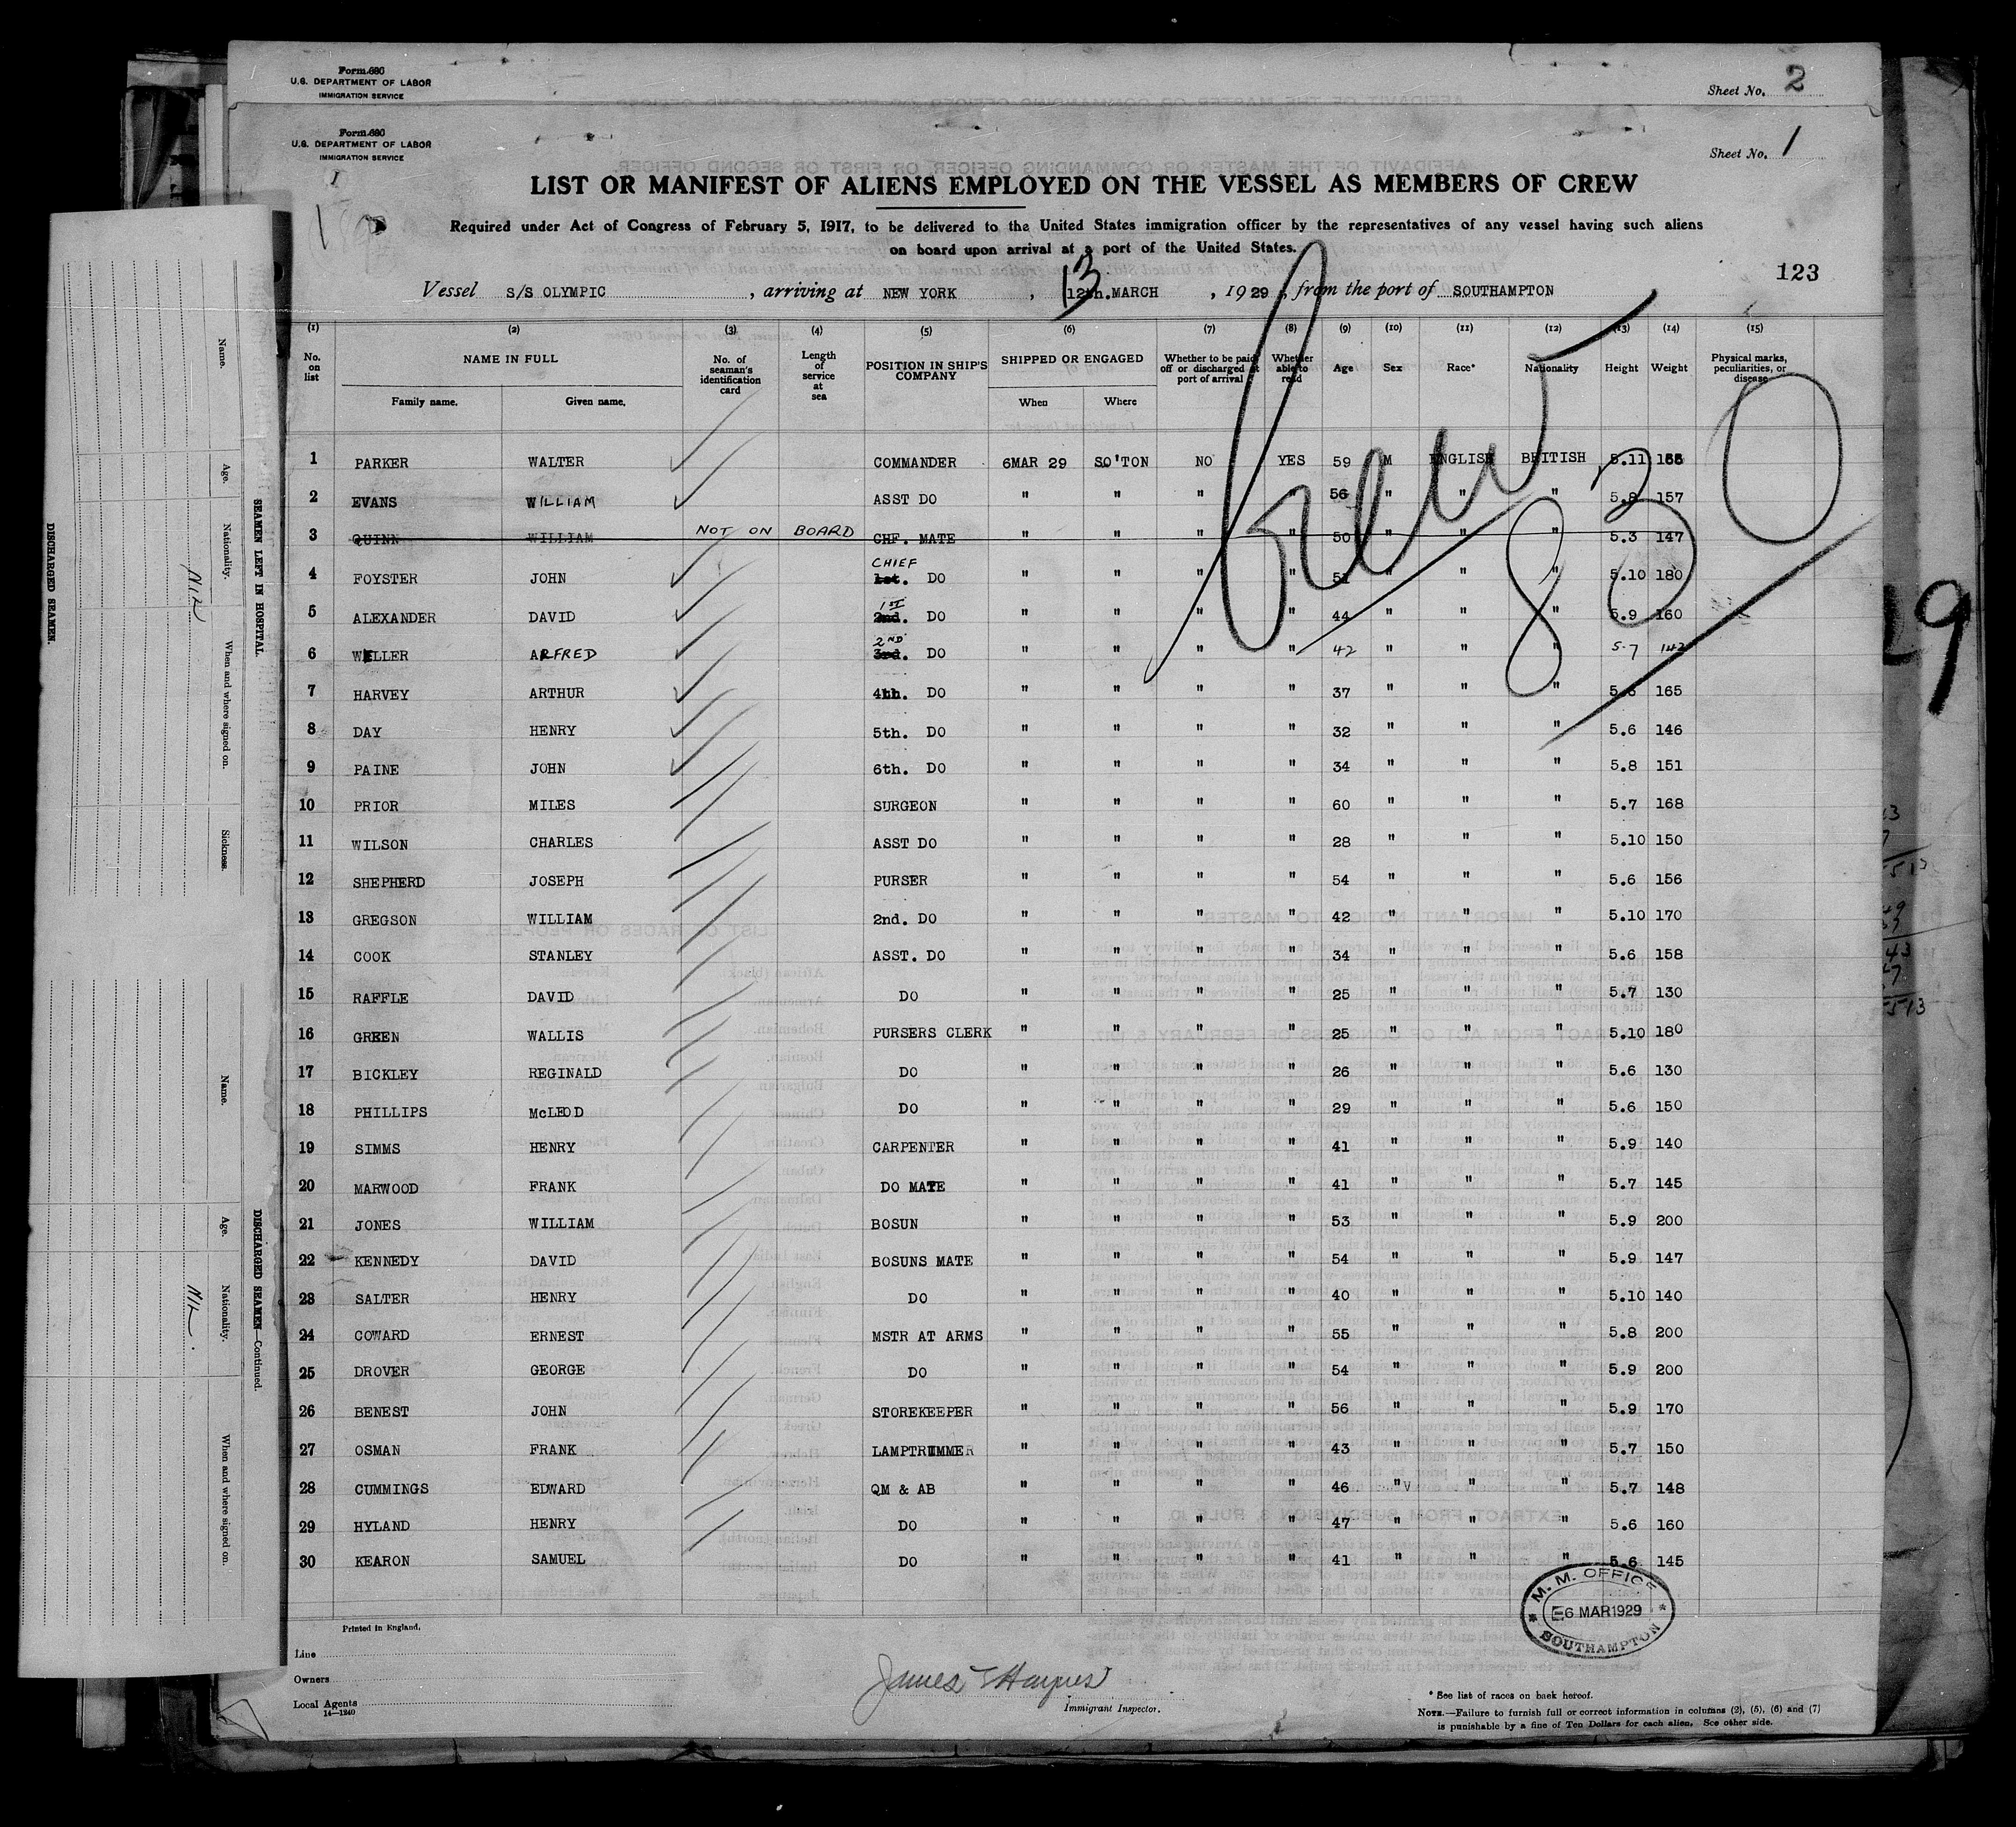 Form 680
U.S. DEPARTMENT OF LABOR
IMMIGRATION SERVICE
Sheet No. 2
Form 680
U.S. DEPARTMENT OF LABOR
IMMIGRATION SERVICE
Sheet No. 1
LIST OR MANIFEST OF ALIENS EMPLOYED ON THE VESSEL AS MEMBERS OF CREW
Required under Act of Congress of February 5, 1917, to be delivered to the United States immigration officer by the representatives of any vessel having such aliens
on board upon arrival at a port of the United States.
123
Vessel S/S OLYMPIC , arriving at NEW YORK , 13 12th. MARCH , 19 29 , from the port of SOUTHAMPTON
(1) (2) (3) (4) (5) (6) (7) (8) (9) (10) (11) (12) (13) (14) (15)
No. on list NAME IN FULL Family name. Given name. No. of seaman's identification card Length of service at sea POSITION IN SHIP'S COMPANY SHIPPED OR ENGAGED When Where Whether to be paid off or discharged at port of arrival Whether able to read Age Sex Race* Nationality Height Weight Physical marks, peculiarities, or disease
1 PARKER WALTER COMMANDER 6MAR 29 SO'TON NO YES 59 M ENGLISH BRITISH 5.11
2 EVANS WILLIAM ASST DO " " " " 56 " " " 5.8 157
3 QUINN WILLIAM NOT ON BOARD CHF. MATE " " " " 50 " " " 5.3 147
4 FOYSTER JOHN CHIEF 1st. DO " " " " 51 " " " 5.10 180
5 ALEXANDER DAVID 1ST 2nd. DO " " " " 44 " " " 5.9 160
6 WELLER ALFRED 2ND 3rd. DO " " " " 42 " " " 5.7 142
7 HARVEY ARTHUR 4th. DO " " " " 37 " " " 165
8 DAY HENRY 5th. DO " " " " 32 " " " 5.6 146
9 PAINE JOHN 6th. DO " " " " 34 " " " 5.8 151
10 PRIOR MILES SURGEON " " " " 60 " " " 5.7 168
11 WILSON CHARLES ASST DO " " " " 28 " " " 5.10 150
12 SHEPHERD JOSEPH PURSER " " " " 54 " " " 5.6 156
13 GREGSON WILLIAM 2nd. DO " " " " 42 " " " 5.10 170
14 COOK STANLEY ASST. DO " " " " 34 " " " 5.6 158
15 RAFFLE DAVID DO " " " " 25 " " " 5.7 130
16 GREEN WALLIS PURSERS CLERK " " " " 25 " " " 5.10 180
17 BICKLEY REGINALD DO " " " " 26 " " " 5.6 130
18 PHILLIPS McLEOD DO " " " " 29 " " " 5.6 150
19 SIMMS HENRY CARPENTER " " " " 41 " " " 5.9 140
20 MARWOOD FRANK DO MATE " " " " 41 " " " 5.7 145
21 JONES WILLIAM BOSUN " " " " 53 " " " 5.9 200
22 KENNEDY DAVID BOSUNS MATE " " " " 54 " " " 5.9 147
23 SALTER HENRY DO " " " " 40 " " " 5.10 140
24 COWARD ERNEST MSTR AT ARMS " " " " 55 " " " 5.8 200
25 DROVER GEORGE DO " " " " 54 " " " 5.9 200
26 BENEST JOHN STOREKEEPER " " " " 56 " " " 5.9 170
27 OSMAN FRANK LAMPTRIMMER " " " " 43 " " " 5.7 150
28 CUMMINGS EDWARD QM & AB " " " " 46 " " " 5.7 148
29 HYLAND HENRY DO " " " " 47 " " " 5.6 160
30 KEARON SAMUEL DO " " " " 41 " " " 5.6 145
Crew
830
M. M. OFFICE
6 MAR 1929
SOUTHAMPTON
Printed in England.
Line
Owners
Local Agents
14—1240
James Haynes
Immigrant Inspector.
* See list of races on back hereof.
NOTE.—Failure to furnish full or correct information in columns (2), (5), (6) and (7)
is punishable by a fine of Ten Dollars for each alien. See other side.
SEAMEN LEFT IN HOSPITAL.
Name. Age. Nationality. When and where signed on. Sickness.
NIL
DISCHARGED SEAMEN.
DISCHARGED SEAMEN—Continued.
Name. Age. Nationality. When and where signed on.
NIL.